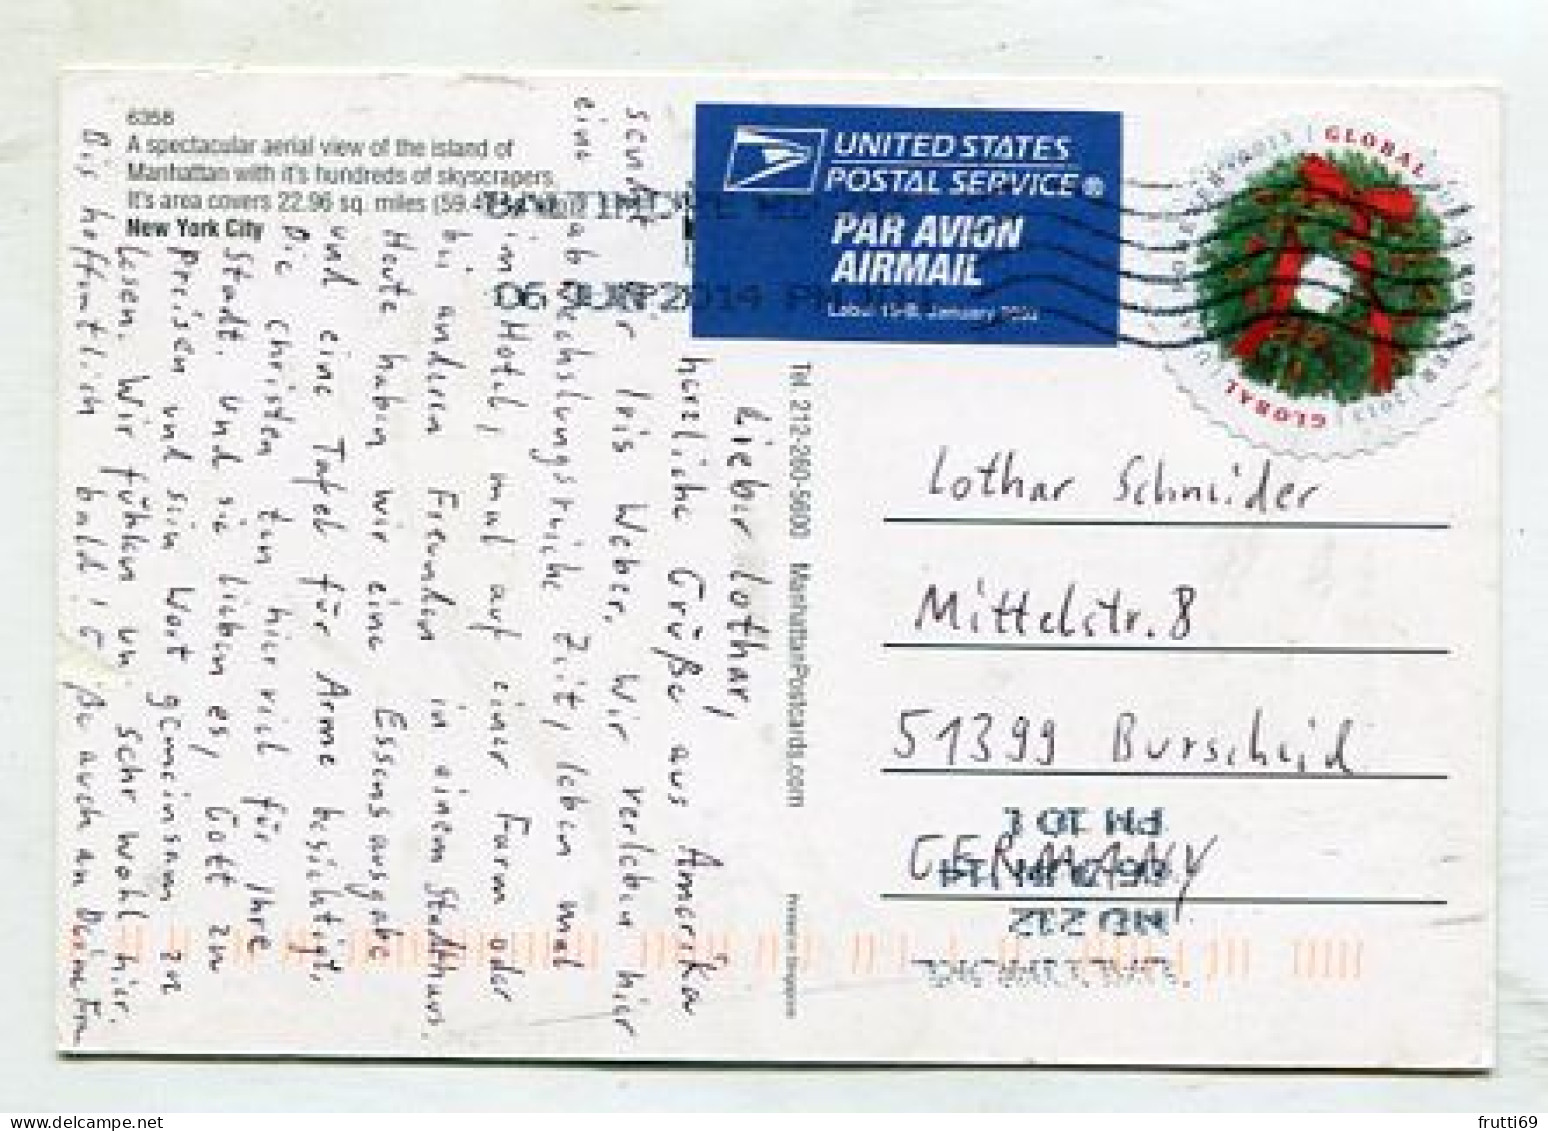 6358
A spectacular aerial view of the island of
Manhattan with it's hundreds of skyscrapers.
It's area covers 22.96 sq. miles (59.47
New York City
UNITED STATES
POSTAL SERVICE®
PAR AVION
AIRMAIL
Label 19-B, January
GLOBAL
GLOBAL
06 JUN 2014 PM
Lieber Lothar,
herzliche Grüße aus Amerika
sendet Dir Lois Weber. Wir verleben hier
eine abwechslungsreiche Zeit, leben mal
im Hotel, mal auf einer Farm oder
bei anderen Freunden in einem Stadthaus.
Heute haben wir eine Essensausgabe
und eine Tafel für Arme besichtigt.
Die Christen tun hier viel für ihre
Stadt. Und sie lieben es, Gott zu
preisen und sein Wort gemeinsam zu
lesen. Wir fühlen uns sehr wohl hier.
Bis hoffentlich bald! auch an Deine
Tel. 212-260-5600 ManhattanPostcards.com
Printed in Singapore
Lothar Schneider
Mittelstr. 8
51399 Burscheid
GERMANY
PM 10 L
MD 212
frutti69